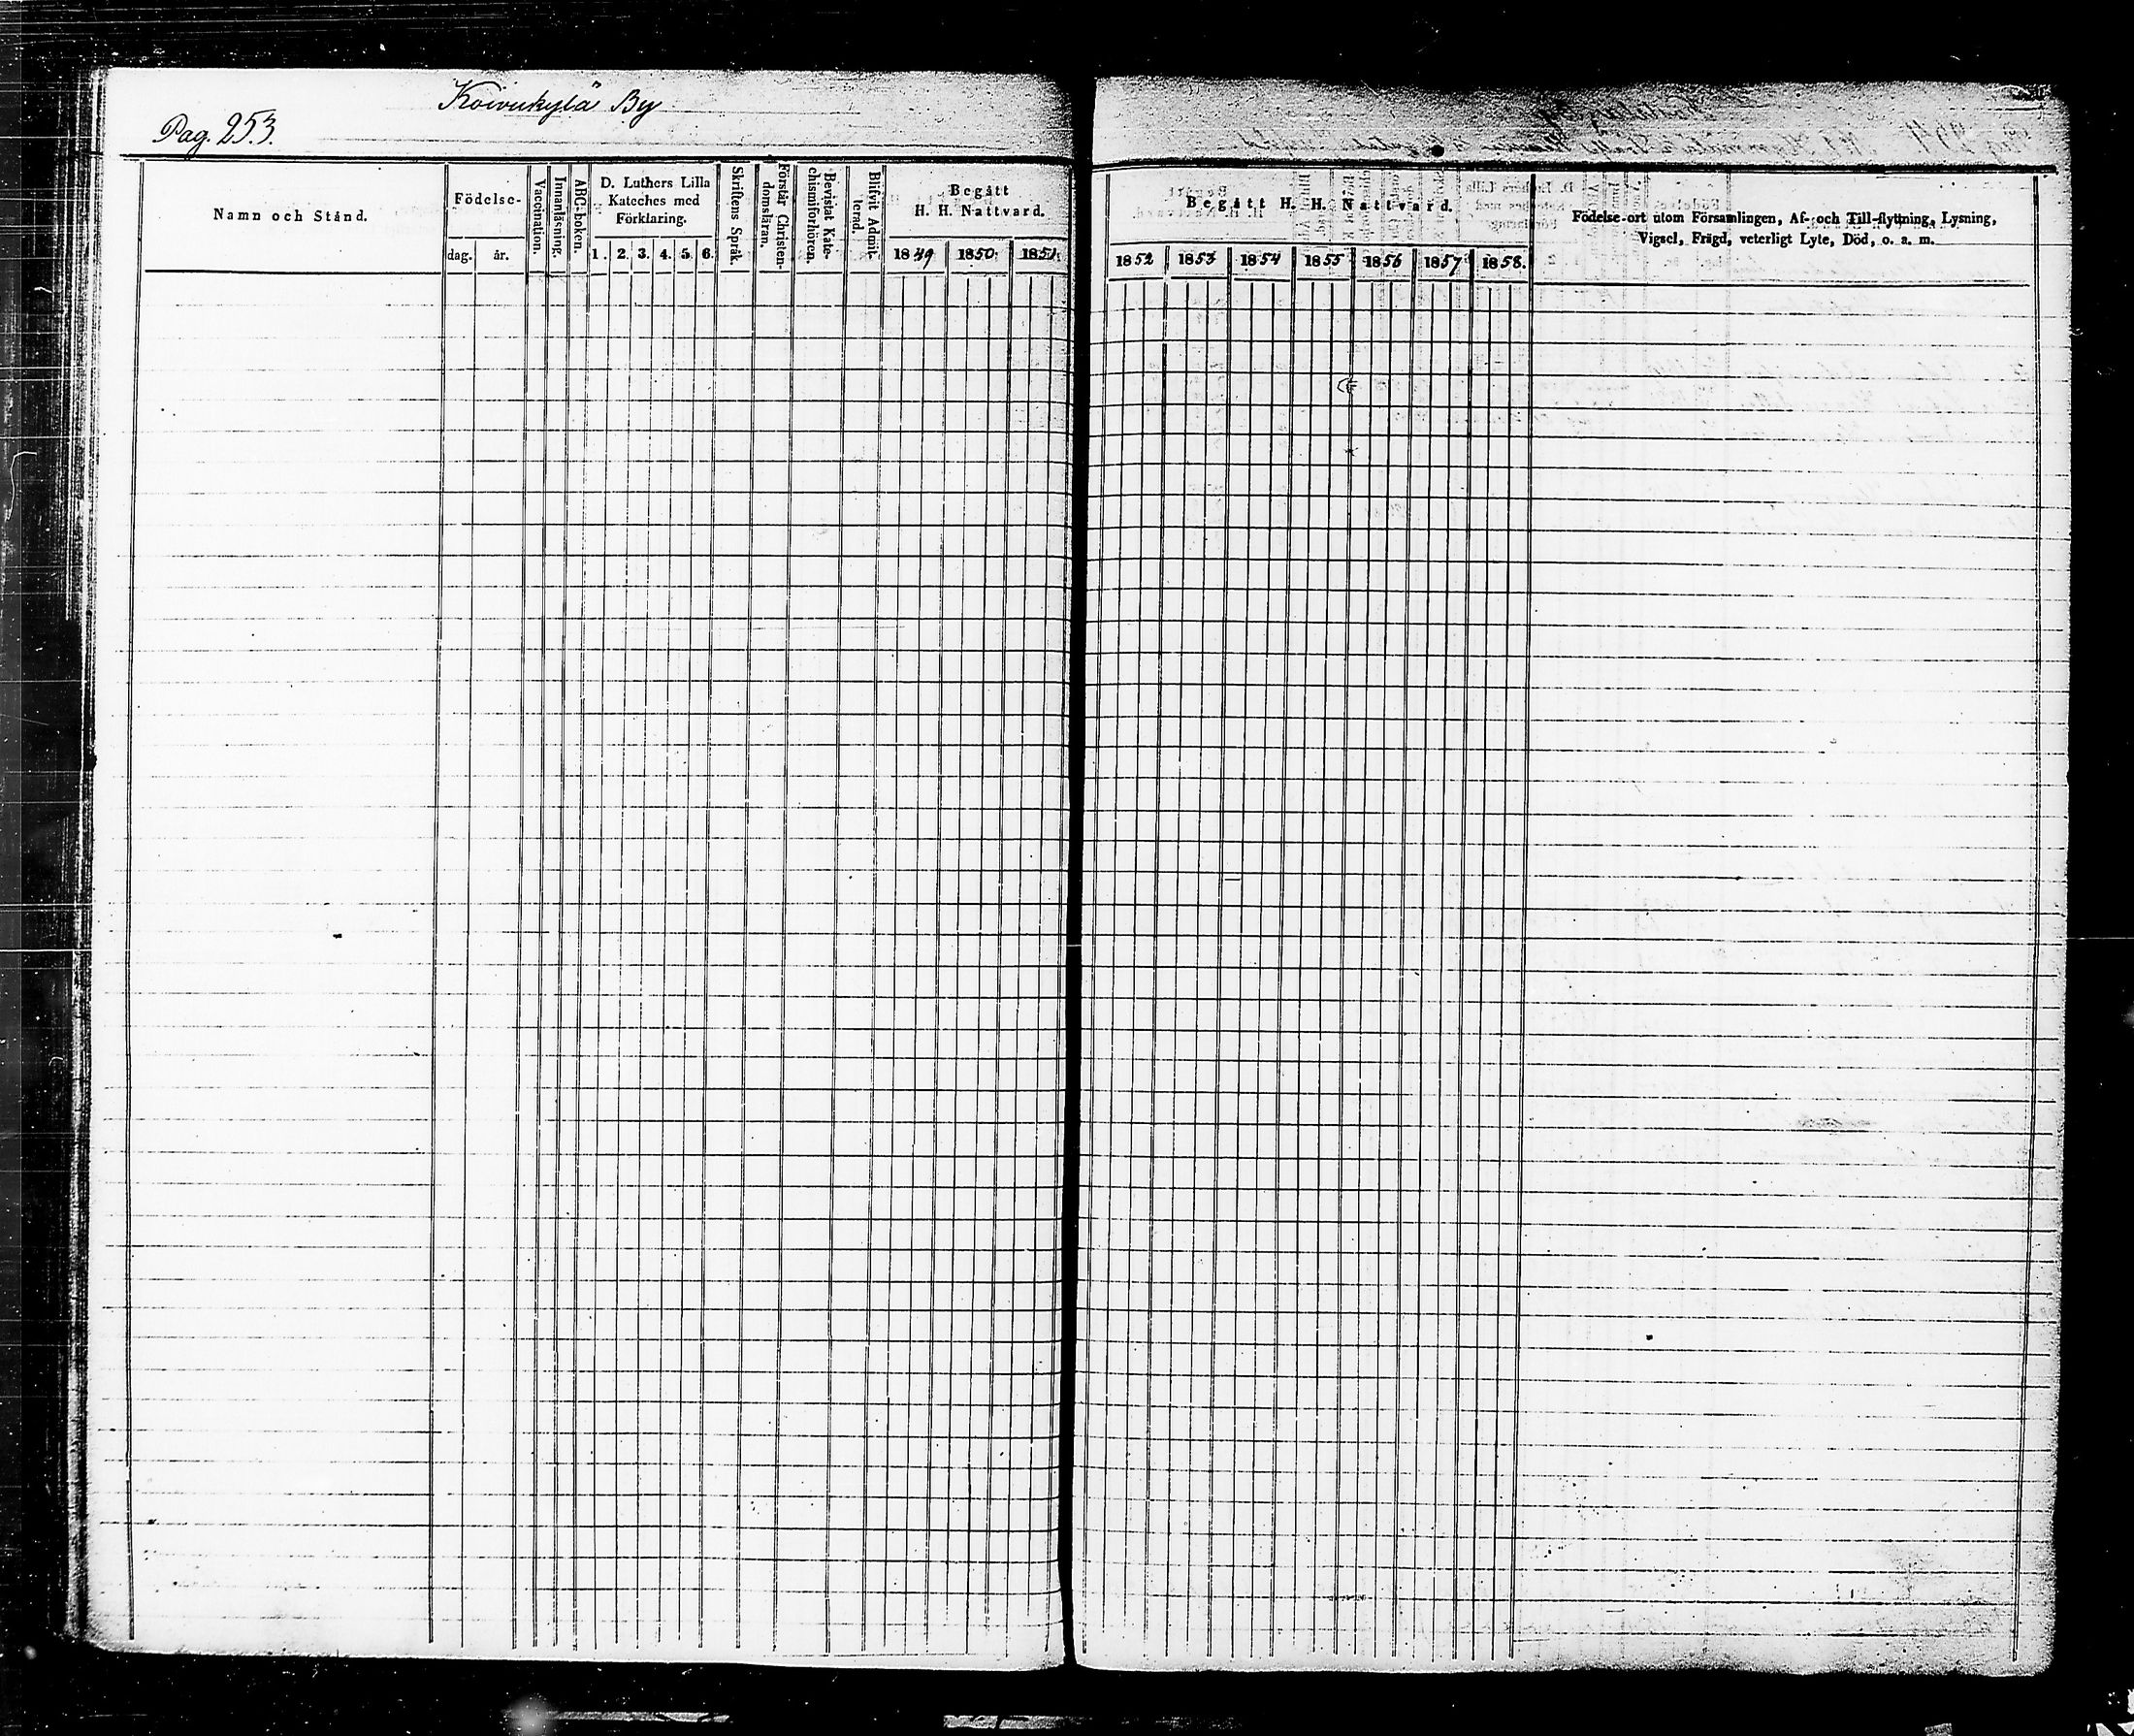 Koivukylä By
Pag. 253.
Namn och Stånd.
Födelse-
dag.
år.
Vaccination.
Innanläsning.
ABC-boken.
D. Luthers Lilla
Kateches med
Förklaring.
1. 2. 3. 4. 5. 6.
Skriftens Språk.
Förstår Christen-
domsläran.
Bevistat Kate-
chismiförhören.
Blifvit Admit-
terad.
Begått
H. H. Nattvard.
1849 1850. 1851.
Begått H. H. Nattvard.
1852 1853 1854 1855 1856 1857 1858.
Födelse-ort utom Församlingen, Af- och Till-flyttning, Lysning,
Vigsel, Frägd, veterligt Lyte, Död, o. a. m.